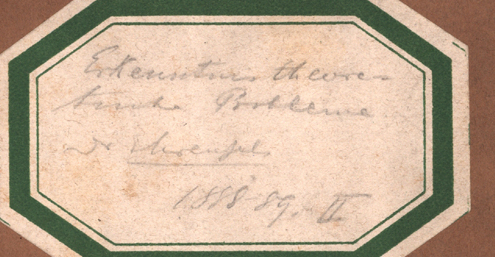 Erkenntnis theore-
tische Probleme
Dr Ehrenfels
1888 89. II.